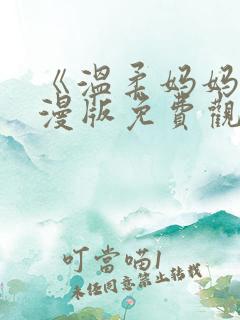 《溫柔妈妈
漫版免費觀
叮當喵1
未经同意禁止转载